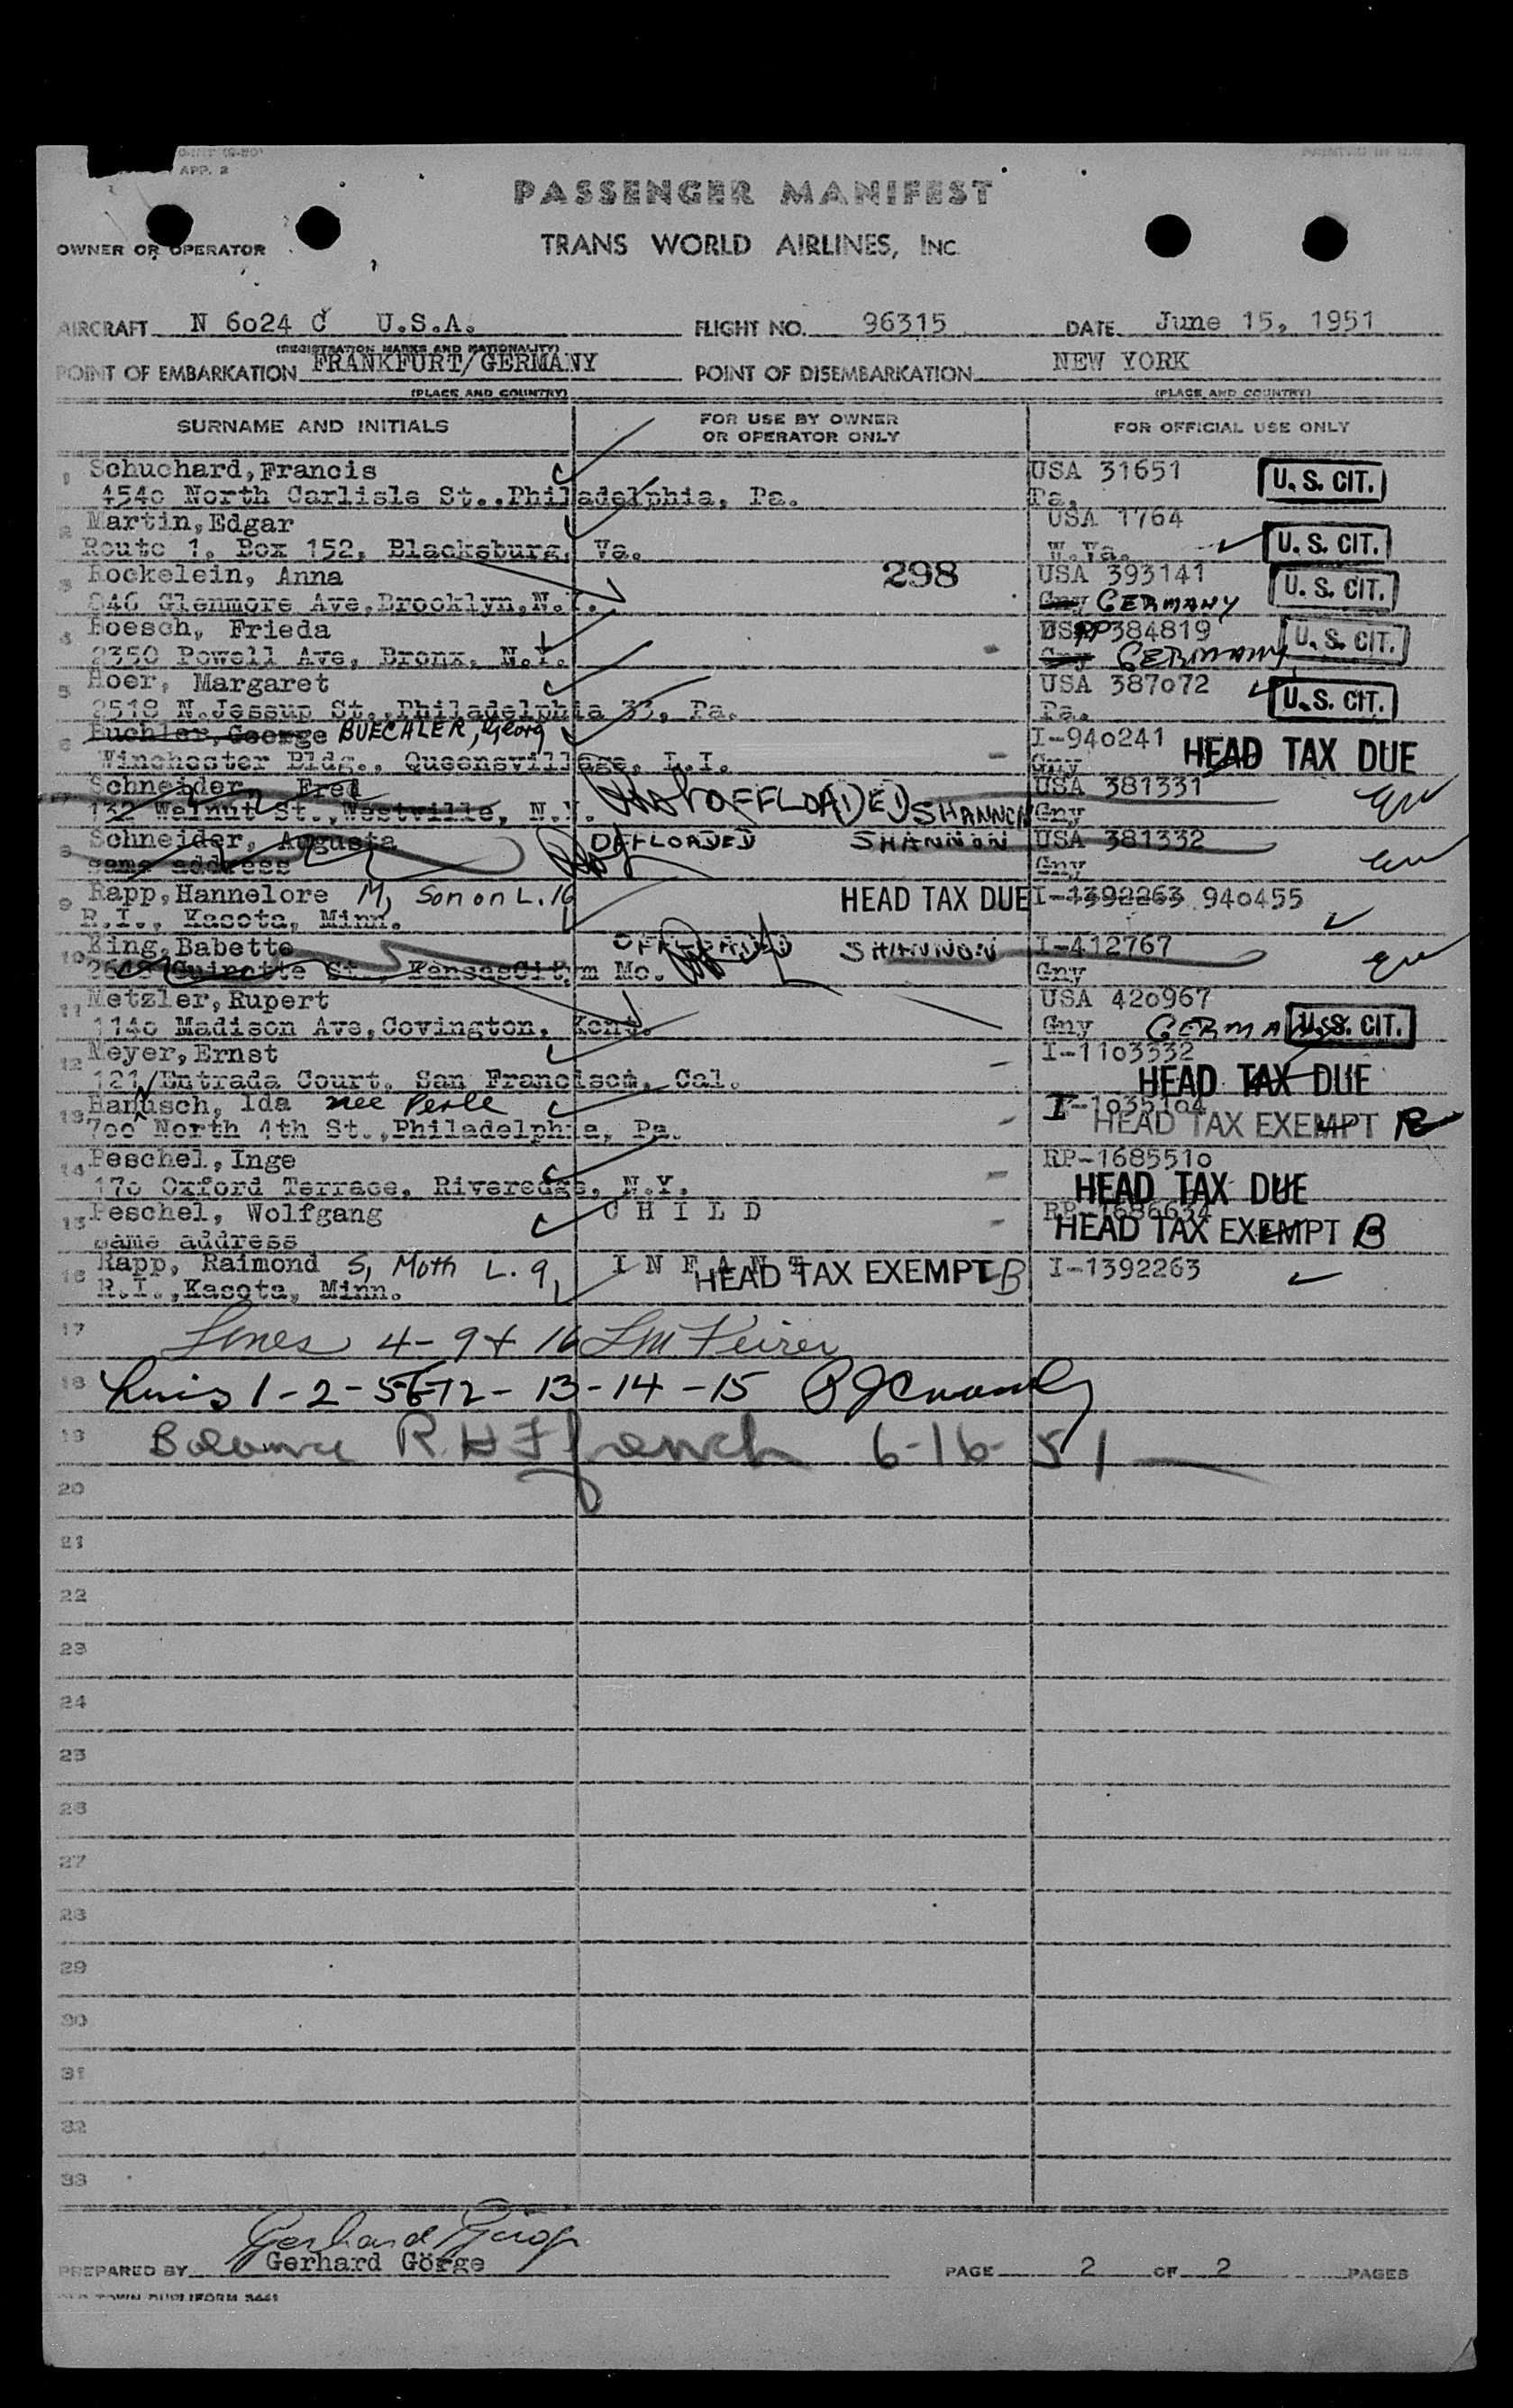 APP. 2
PASSENGER MANIFEST
OWNER OR OPERATOR TRANS WORLD AIRLINES, INC.
AIRCRAFT N 6o24 C U.S.A. FLIGHT NO. 96315 DATE June 15, 1951
(REGISTRATION MARKS AND NATIONALITY)
POINT OF EMBARKATION FRANKFURT/GERMANY POINT OF DISEMBARKATION NEW YORK
(PLACE AND COUNTRY) (PLACE AND COUNTRY)
SURNAME AND INITIALS FOR USE BY OWNER OR OPERATOR ONLY FOR OFFICIAL USE ONLY
1 Schuchard,Francis USA 31651 U.S. CIT.
454o North Carlisle St.,Philadelphia, Pa. Pa.
2 Martin,Edgar USA 1764
Route 1, Box 152, Blacksburg, Va. W.Va. U.S. CIT.
3 Hockelein, Anna 298 USA 393141 U.S. CIT.
846 Glenmore Ave,Brooklyn,N.Y. Gny GERMANY
4 Boesch, Frieda 384819 U.S. CIT.
235o Powell Ave, Bronx, N.Y. Gny GERMANY
5 Hoer, Margaret USA 387o72 U.S. CIT.
2518 N.Jessup St.,Philadelphia 33, Pa. Pa.
6 Buchler,George BUECHLER, Georg I-94o241 HEAD TAX DUE
Winchester Bldg., Queensvillage, L.I. Gny
7 Schneider, Fred USA 381331
132 Walnut St.,Westville, N.Y. OFFLOADED SHANNON Gny
8 Schneider, Augusta OFFLOADED SHANNON USA 381332
same address Gny
9 Rapp,Hannelore M, Son on L.16 HEAD TAX DUE I-1392263 940455
R.I., Kasota, Minn.
10 King,Babette OFFLOADED SHANNON I-412767
St., KansasCitym Mo. Gny
11 Metzler,Rupert USA 42o967
114o Madison Ave,Covington, Kent. Gny GERMANY U.S. CIT.
12 Meyer,Ernst I-11o3332
121 Entrada Court, San Francisco, Cal. HEAD TAX DUE
13 Hanusch, Ida nee Perle I-1o351o4
7oo North 4th St.,Philadelphia, Pa. HEAD TAX EXEMPT B
14 Peschel,Inge RP-168551o
17o Oxford Terrace, Riveredge, N.Y. HEAD TAX DUE
15 Peschel, Wolfgang C H I L D RP-1686634
same address HEAD TAX EXEMPT B
16 Rapp, Raimond S, Moth L. 9, I N F A N T HEAD TAX EXEMPT B I-1392263
R.I.,Kasota, Minn.
17 Lines 4-9+16
18 1-2-5-6-12-13-14-15
19 Balance 6-16-51
20
21
22
23
24
25
26
27
28
29
30
31
32
33
Gerhard Görge
PREPARED BY Gerhard Görge PAGE 2 OF 2 PAGES
OLD TOWN DUPLIFORM 3461